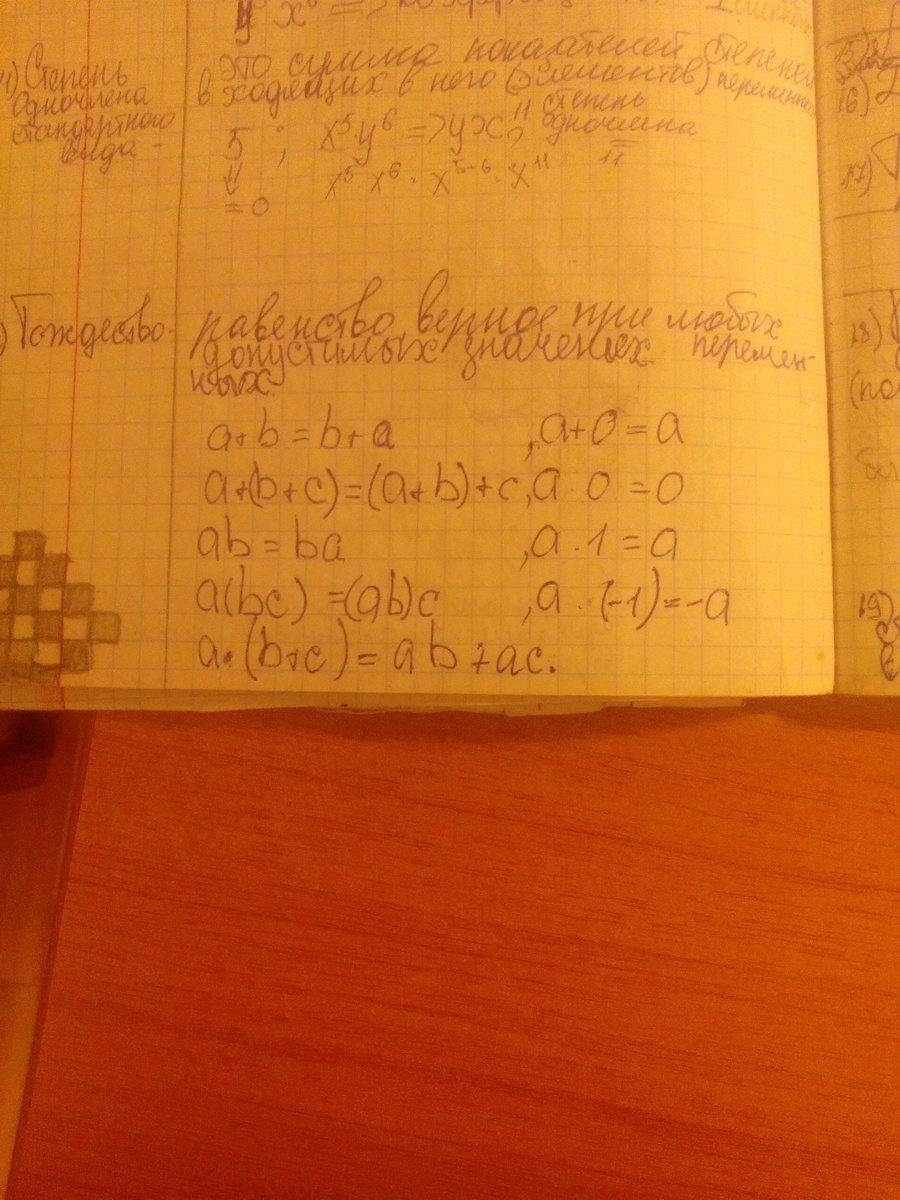 Степень
одночлена
стандартного
вида -
это сумма показателей степеней
входящих в него (элементов) переменных
5 ; x⁵y⁶ => yx¹¹, степень
одночлена
11
= 0
x⁵ · x⁶ · x⁵⁺⁶ · x¹¹
Тождество - равенство верное при любых
допустимых значениях перемен-
ных.
a+b=b+a , a+0=a
a+(b+c)=(a+b)+c, a·0=0
ab=ba , a·1=a
a(bc)=(ab)c , a·(-1)=-a
a·(b+c)=ab+ac.
16)
17)
18)
19)